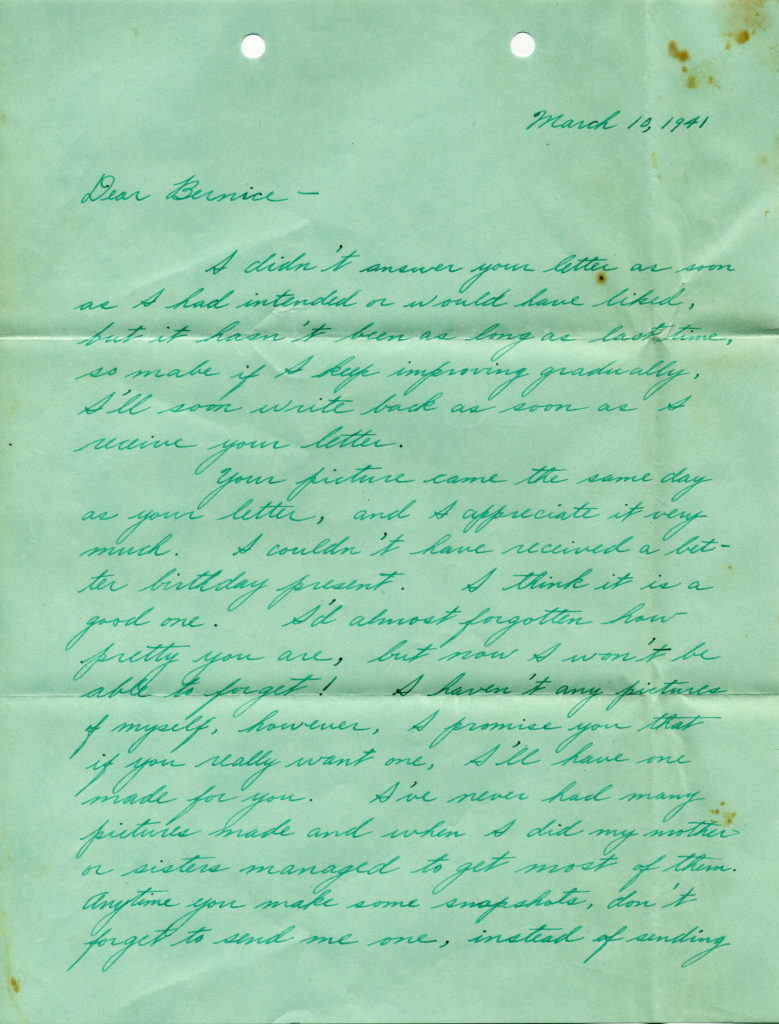 March 10, 1941
Dear Bernice —
I didn't answer your letter as soon
as I had intended or would have liked,
but it hasn't been as long as last time,
so mabe if I keep improving gradually,
I'll soon write back as soon as I
receive your letter.
Your picture came the same day
as your letter, and I appreciate it very
much. I couldn't have received a bet-
ter birthday present. I think it is a
good one. I'd almost forgotten how
pretty you are, but now I won't be
able to forget! I haven't any pictures
of myself, however, I promise you that
if you really want one, I'll have one
made for you. I've never had many
pictures made and when I did my mother
or sisters managed to get most of them.
Anytime you make some snapshots, don't
forget to send me one, instead of sending